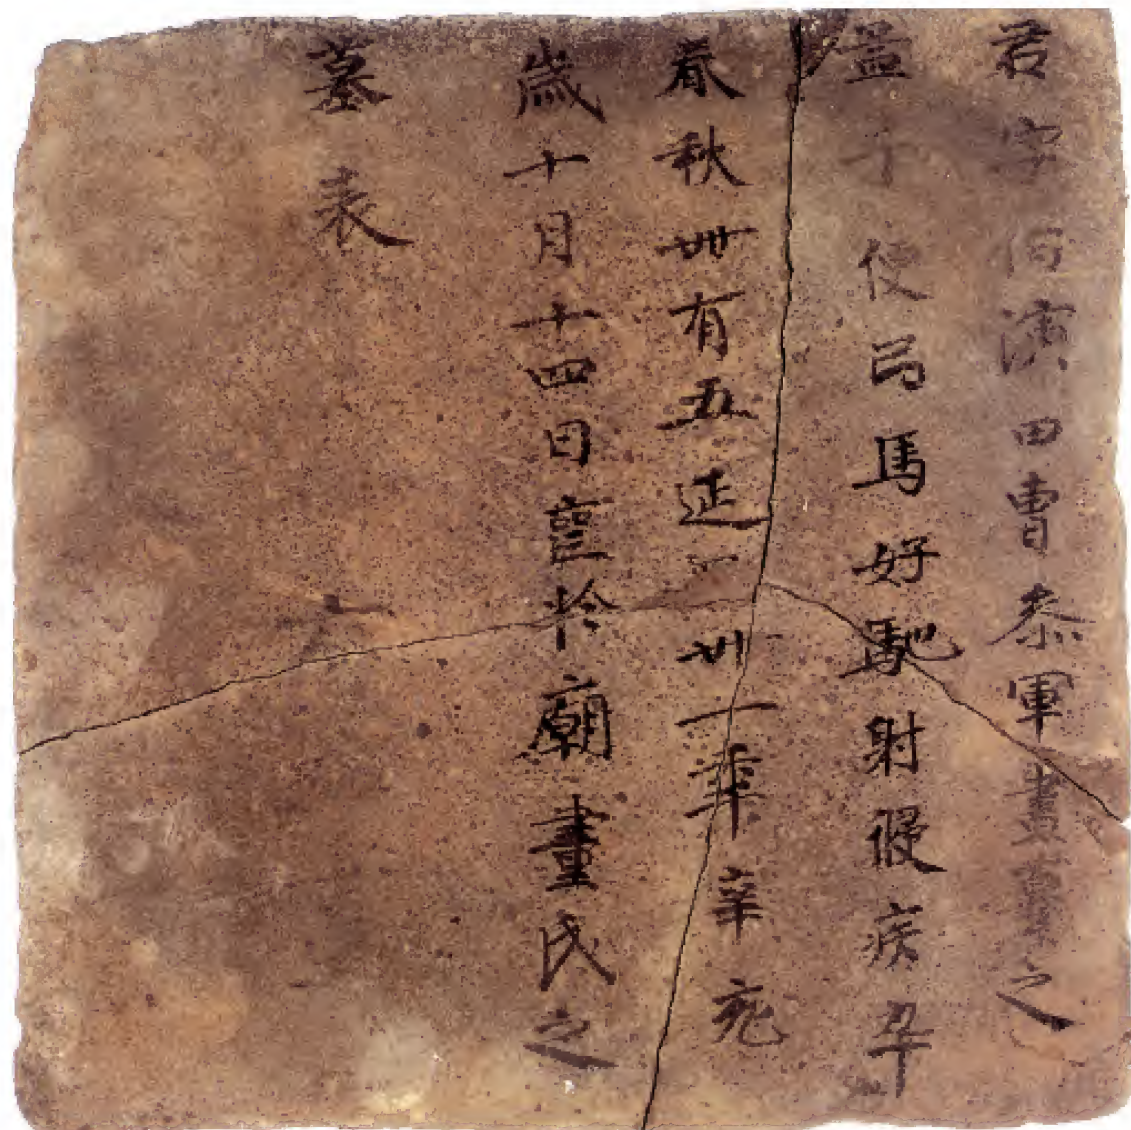 君字伯演田曹叅軍畫纂之
孟子便弓馬好馳射侵疾卒
春秋卌有五延昌卅一年辛亥
歲十月十四日喪於廟畫氏之
墓表